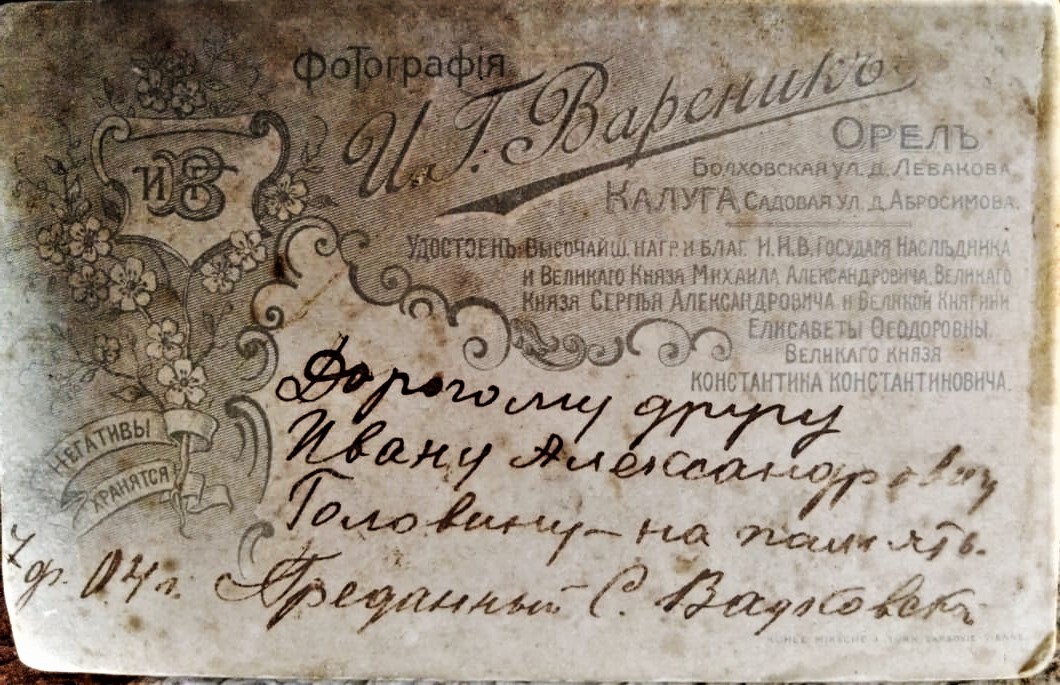 Фотографія
И. Г. Вареникъ
И В Г
Орелъ
Болховская ул. д. Левакова.
Калуга, Садовая ул. д. Абросимова.
Удостоенъ: Высочайш. нагр. и благ. Н. И. В. Государя Наслѣдника
и Великаго Князя Михаила Александровича, Великаго
Князя Сергѣя Александровича и Великой Княгини
Елисаветы Ѳеодоровны
Великаго князя
Константина Константиновича.
Негативы
хранятся
Дорогому другу
Ивану Александровичу
Головину – на память.
Преданный С.
7 ф. 04 г.